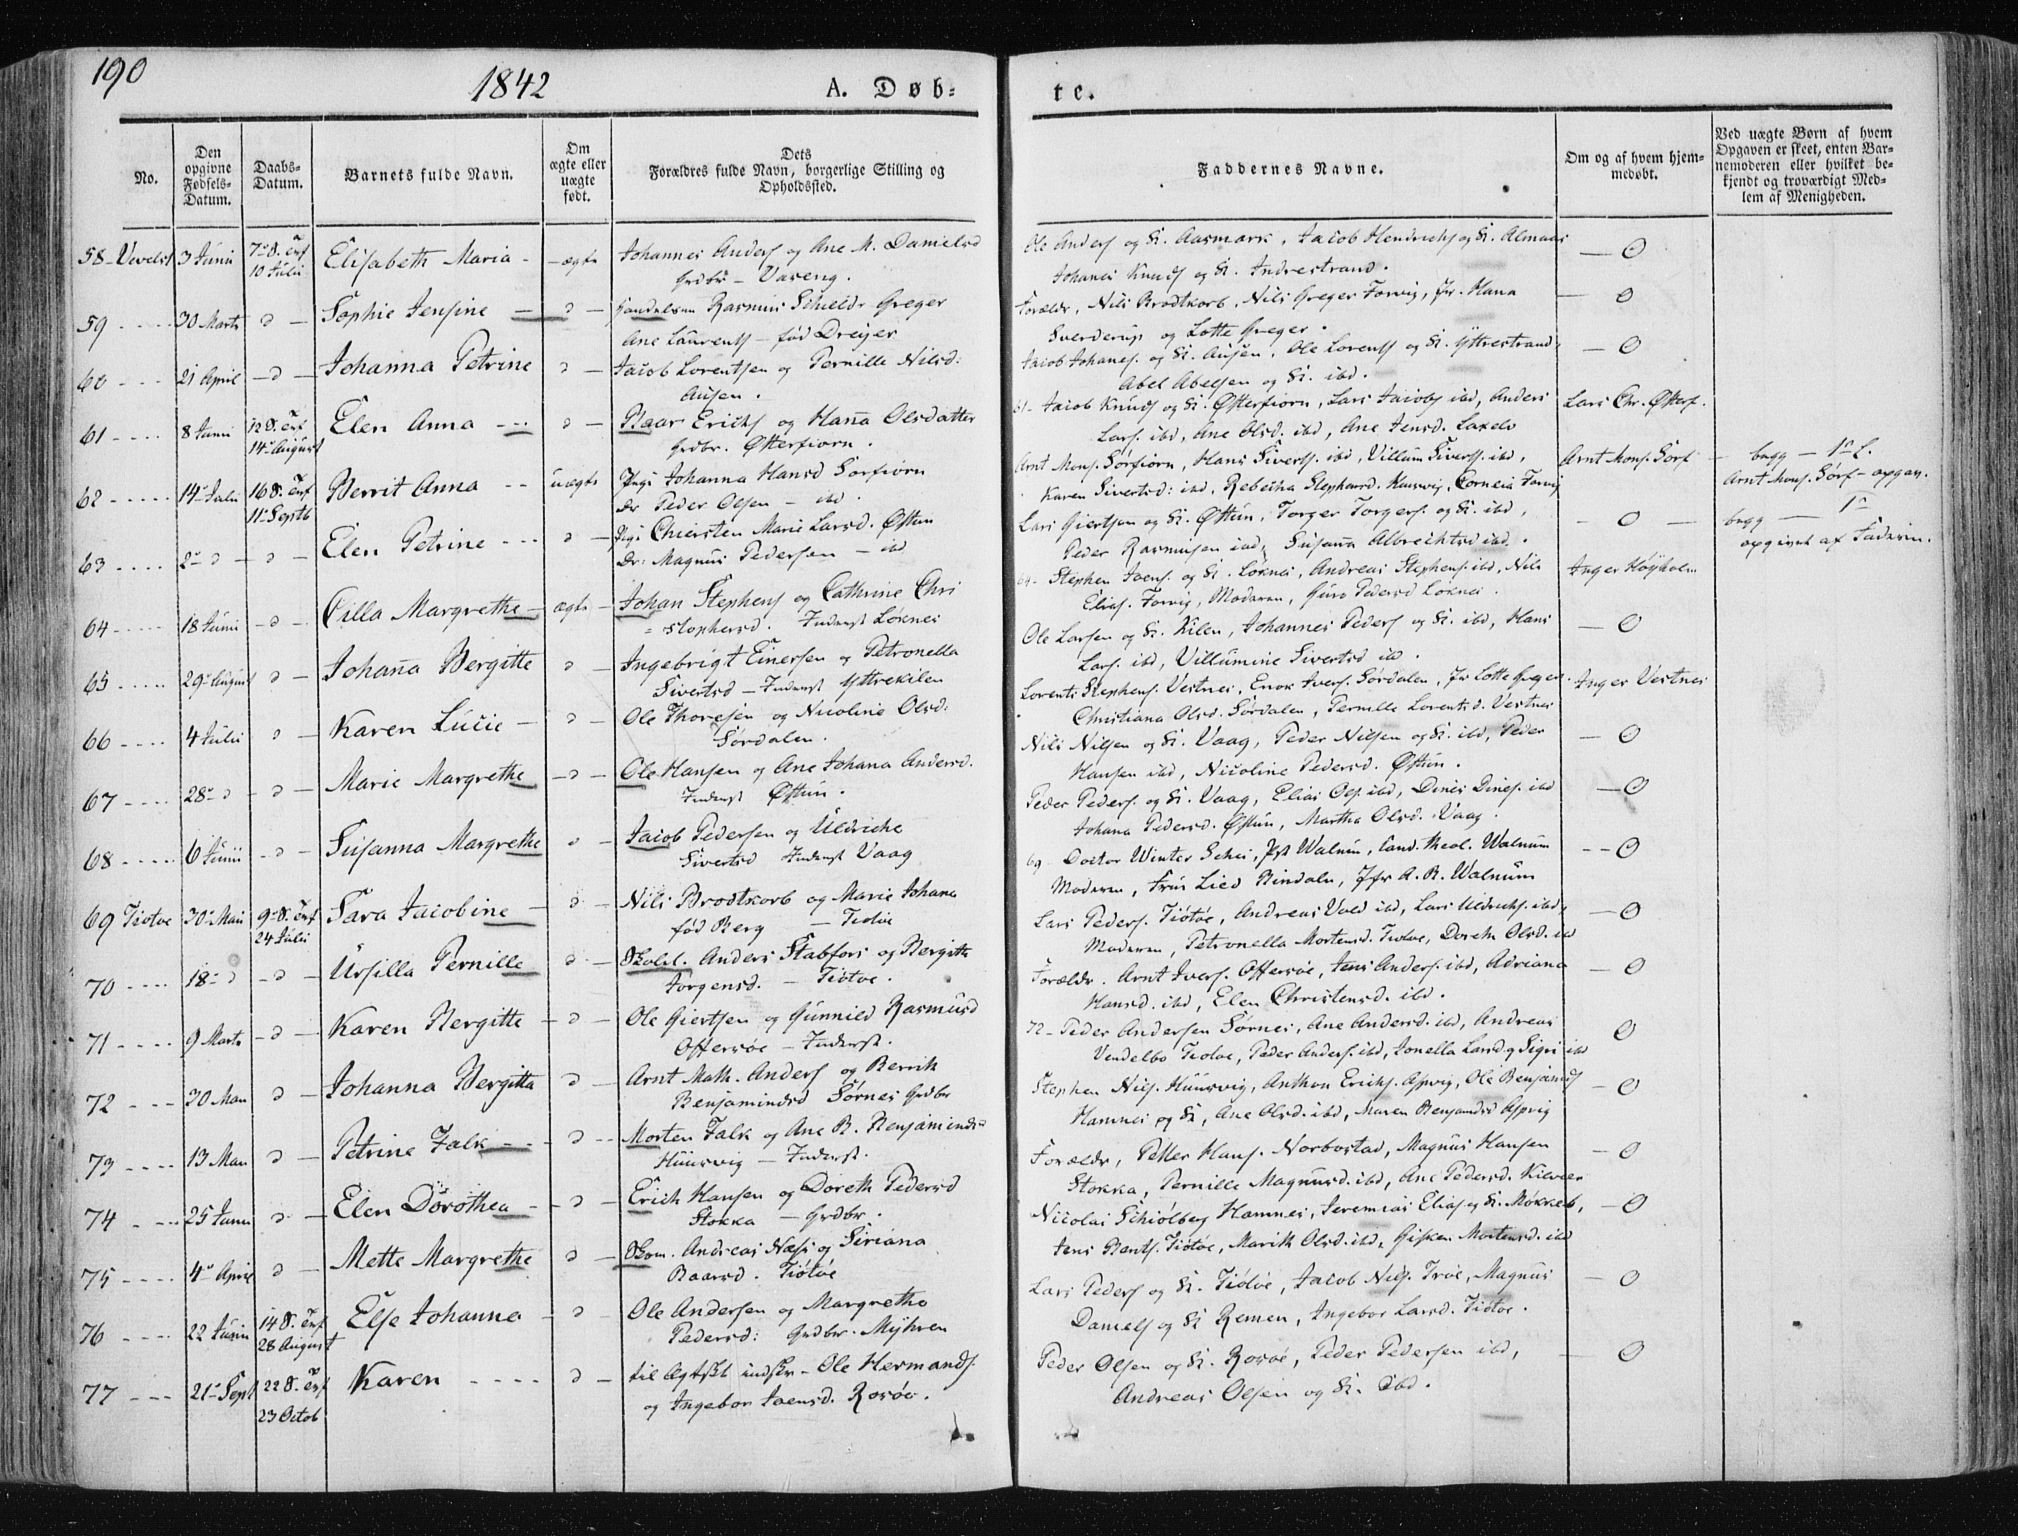 190
1842
A. Døb-
te.
No.
Den
opgivne
Fødsels-
Datum.
Daabs-
Datum.
Barnets fulde Navn.
Om
ægte eller
uægte
født.
Dets
Forældres fulde Navn, borgerlige Stilling og
Opholdssted.
Faddernes Navne.
Om og af hvem hjem-
medøbt.
Ved uægte Børn af hvem
Opgaven er skeet, enten Bar-
nemoderen eller hvilket be-
kjendt og troværdigt Med-
lem af Menigheden.
58 - Vevelst 3 Junii 7de S. Trf 10 Julii Elisabeth Maria - - ægte
Johannes Anders og Ane M. Danielsd
Grdbr - Vaseng.
Ole Anders og K. Aasmark, Jacob Hendrichs og K. Almaas
Johanes Knuds og K. Indrestrand.
— 0
59 - - - - 30 Marts d — Sophie Jensine — d —
Handelsm Rasmus Schieldr Greger
Ane Laurents - fød Dreyer
Forældr, Nils Brodtkorb, Nils Greger Forvig, Jfr. Hana
Sverderup og Lotte Greger.
— 0
60 - - - 21 April - d — Johanna Petrine d —
Jacob Lorentsen og Pernille Nilsd:
Ausen.
Jacob Johanes. og K. Ausen, Ole Lorents og K. Yttrestrand,
Abel Abelsen og K. ibd.
— 0
61 - - - - 8 Junii 12 S. Trf 14de August Elen Anna - - - d —
Roar Erichs og Hana Olsdatter
Grdbr. Østerfiorn.
61 - Jacob Knuds og K. Østerfiorn, Lars Jacobs ibd, Anders
Lars. ibd, Ane Olsd. ibd, Ane Jensd. Laxelv
Lars Chr. Østerf.
62 - - - - - 14de Julii 16 S. Trf 11te Septb Berrit Anna - - uægte
Pige Johanna Hansd Sørfiorn
Dr Peder Olsen - ibd.
Arnt Mons. Sørfiorn, Hans Siverss. ibd, Villum Siverss. ibd,
Karen Sivertsd: ibd, Rebecka Stephansd. Kusvig, Cornelia Forvig
Arnt Mons. Sørf — begg — 1ste L.
Arnt Mons. Sørf - opgav.
63 - - - - 2de d - d — Elen Petrine - - - d —
Pige Chiersten Marie Larsd. Østun
Dr: Magnus Pedersen - ibd
Lars Giertsen og K. Østun, Torger Torgers. og K. ibd,
Peder Rasmusen ibd, Susana Albrechtsd ibd.
— 0 — begg — 1ste
opgivet af Faderen.
64 - - - - 18 Junii - d - Cilla Margrethe - ægte -
Johan Stephens og Cathrine Chri
= stophersd. Inderst Løknes
64 - Stephen Joens. og K. Løknes, Andreas Stephens. ibd, Nils
Elias. Forvig, Moderen, Guro Pedersd Løknes.
Inger Høyholm
65 - - - - - 29de August d — Johana Bergitte d —
Ingebrigt Einersen og Petronella
Sivertsd - Inderst Yttrekilen
Ole Larsen og K. Kilen, Johannes Peders og K. ibd, Hans
Lars. ibd, Villumine Sivertsd ib.
— 0
66 - - - - 4 Julii d - Karen Lucie - - d -
Ole Thoresen og Nicoline Olsd:
Sørdalen.
Lorents Stephens. Vestnes, Enok Ivers. Sørdalen, Jfr Lotte Greger.
Christiana Olsd. Sørdalen, Pernille Lorentsd. Vestnes
Inger Vestnes
67 - - - - 28de d - d — Marie Margrethe - d -
Ole Hansen og Ane Johana Andersd.
Inderst Østun.
Nils Nilsen og K. Vaag, Peder Nilsen og K. ibd, Peder
Hansen ibd, Nicoline Pedersd. Østun.
— 0
68 - - - - - 6 Junii - d - Susanna Margrethe d -
Jacob Pedersen og Uldriche
Sivertsd Inderst Vaag
Peder Peders. og K. Vaag, Elias Ols. ibd, Dines Dines. ibd
Johana Pedersd. Østun, Martha Olsd. Vaag.
— 0
69 Tiøtøe 30te Mai 9de S. Trf 24 Julii Sara Jacobine - d -
Nils Brodtkorb og Marie Johana
fød Berg — Tiøtøe
69 - Doctor Winter Schei, Pst Walnum, Cand. theol. Walnum
Moderen, Frue Lied Bindaln, Jfr A. R. Walnum
- - 0
70 - - - - 18de d - d — Ursilla Pernille d -
Skolel. Anders Stabfors og Bergitte
Jørgensd. - Tiøtøe.
Lars Peders. Tiøtøe, Andreas Vold ibd, Lars Uldrichs. ibd,
Moderen, Petronella Mortensd. Tiøtøe, Doreth Olsd. ibd
— 0
71 - - - - 9 Marts - d — Karen Bergitte - d -
Ole Giertsen og Gunnild Rasmusd
Offersøe - Inderst.
Forældr. Arnt Ivers. Offersøe, Jens Anders. ibd, Adriana
Hansd. ibd, Elen Christensd. ibd.
— 0
72 - - - 30 Mai d - Johanna Bergitta d -
Arnt Math. Anders og Berrith
Benjaminsd Sørnes Grdbr
72 - Peder Andersen Sørnes, Ane Andersd. ibd, Andreas
Vendelbo Tiøtøe, Peder Anders. ibd, Jonella Larsd og Sigri ibd
0
73 - - - - 13 Mai d — Petrine Falk - - - d - -
Morten Falk og Ane B. Benjaminsd
Huusvig - Inderst.
Stephen Nils. Huusvig, Anthon Erichs. Aspvig, Ole Benjamins
Hamnes og K, Ane Olsd. ibd, Maren Benjamsd Aspvig
— 0
74 - - - - 25 Junii d - Elen Dorothea - - d -
Erich Hansen og Doreth Pedersd
Stokka - Grdbr.
Forældr, Petter Hans. Norbostad, Magnus Hansen
Stokka, Pernille Magnusd. ibd, Ane Pedersd. Kilveer
— 0
75 - - - - 4de April d - Mette Margrethe d -
Skom. Andreas Næss og Siriana
Baarsd. Tiøtøe
Nicolai Schiølberg Hamnes, Jeremias Elias og K. Møkkeb,
Jens Bents. Tiøtøe, Marith Olsd. ibd, Gisken Mortensd. ibd
— 0
76 - - - 22 Junii 14 S. Trf 28 August Else Johanna - d -
Ole Andersen og Margrethe
Pedersd: Grdbr. Myhren
Lars Peders og K. Tiøtøe, Jacob Nils. Trøe, Magnus
Daniels og K Remen, Ingebor Larsd. Tiøtøe.
— 0
77 - - - 21de Sept 22 S. Trf 23 Octob Karen - - - - d -
til Ægtsk indskr - Ole Hermands.
og Ingebor Joensd. Rosøe.
Peder Olsen og K. Rosøe, Peder Pedersen ibd,
Andreas Olsen og K. ibd.
— 0